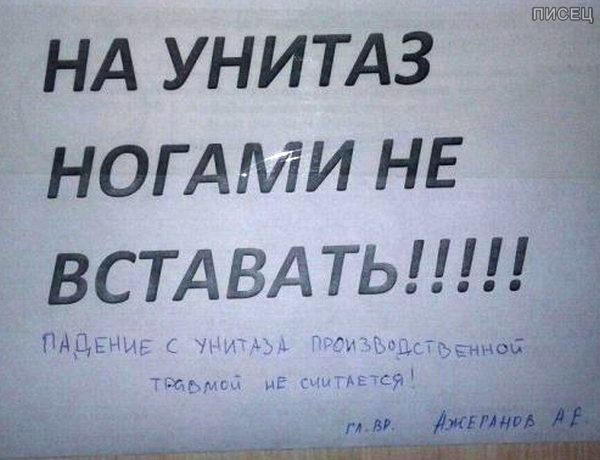 ПИСЕЦ
НА УНИТАЗ
НОГАМИ НЕ
ВСТАВАТЬ!!!!!
ПАДЕНИЕ С УНИТАЗА ПРОИЗВОДСТВЕННОЙ
ТРАВМОЙ НЕ СЧИТАЕТСЯ!
ГЛ. ВР. АЖЕРАНОВ А Е